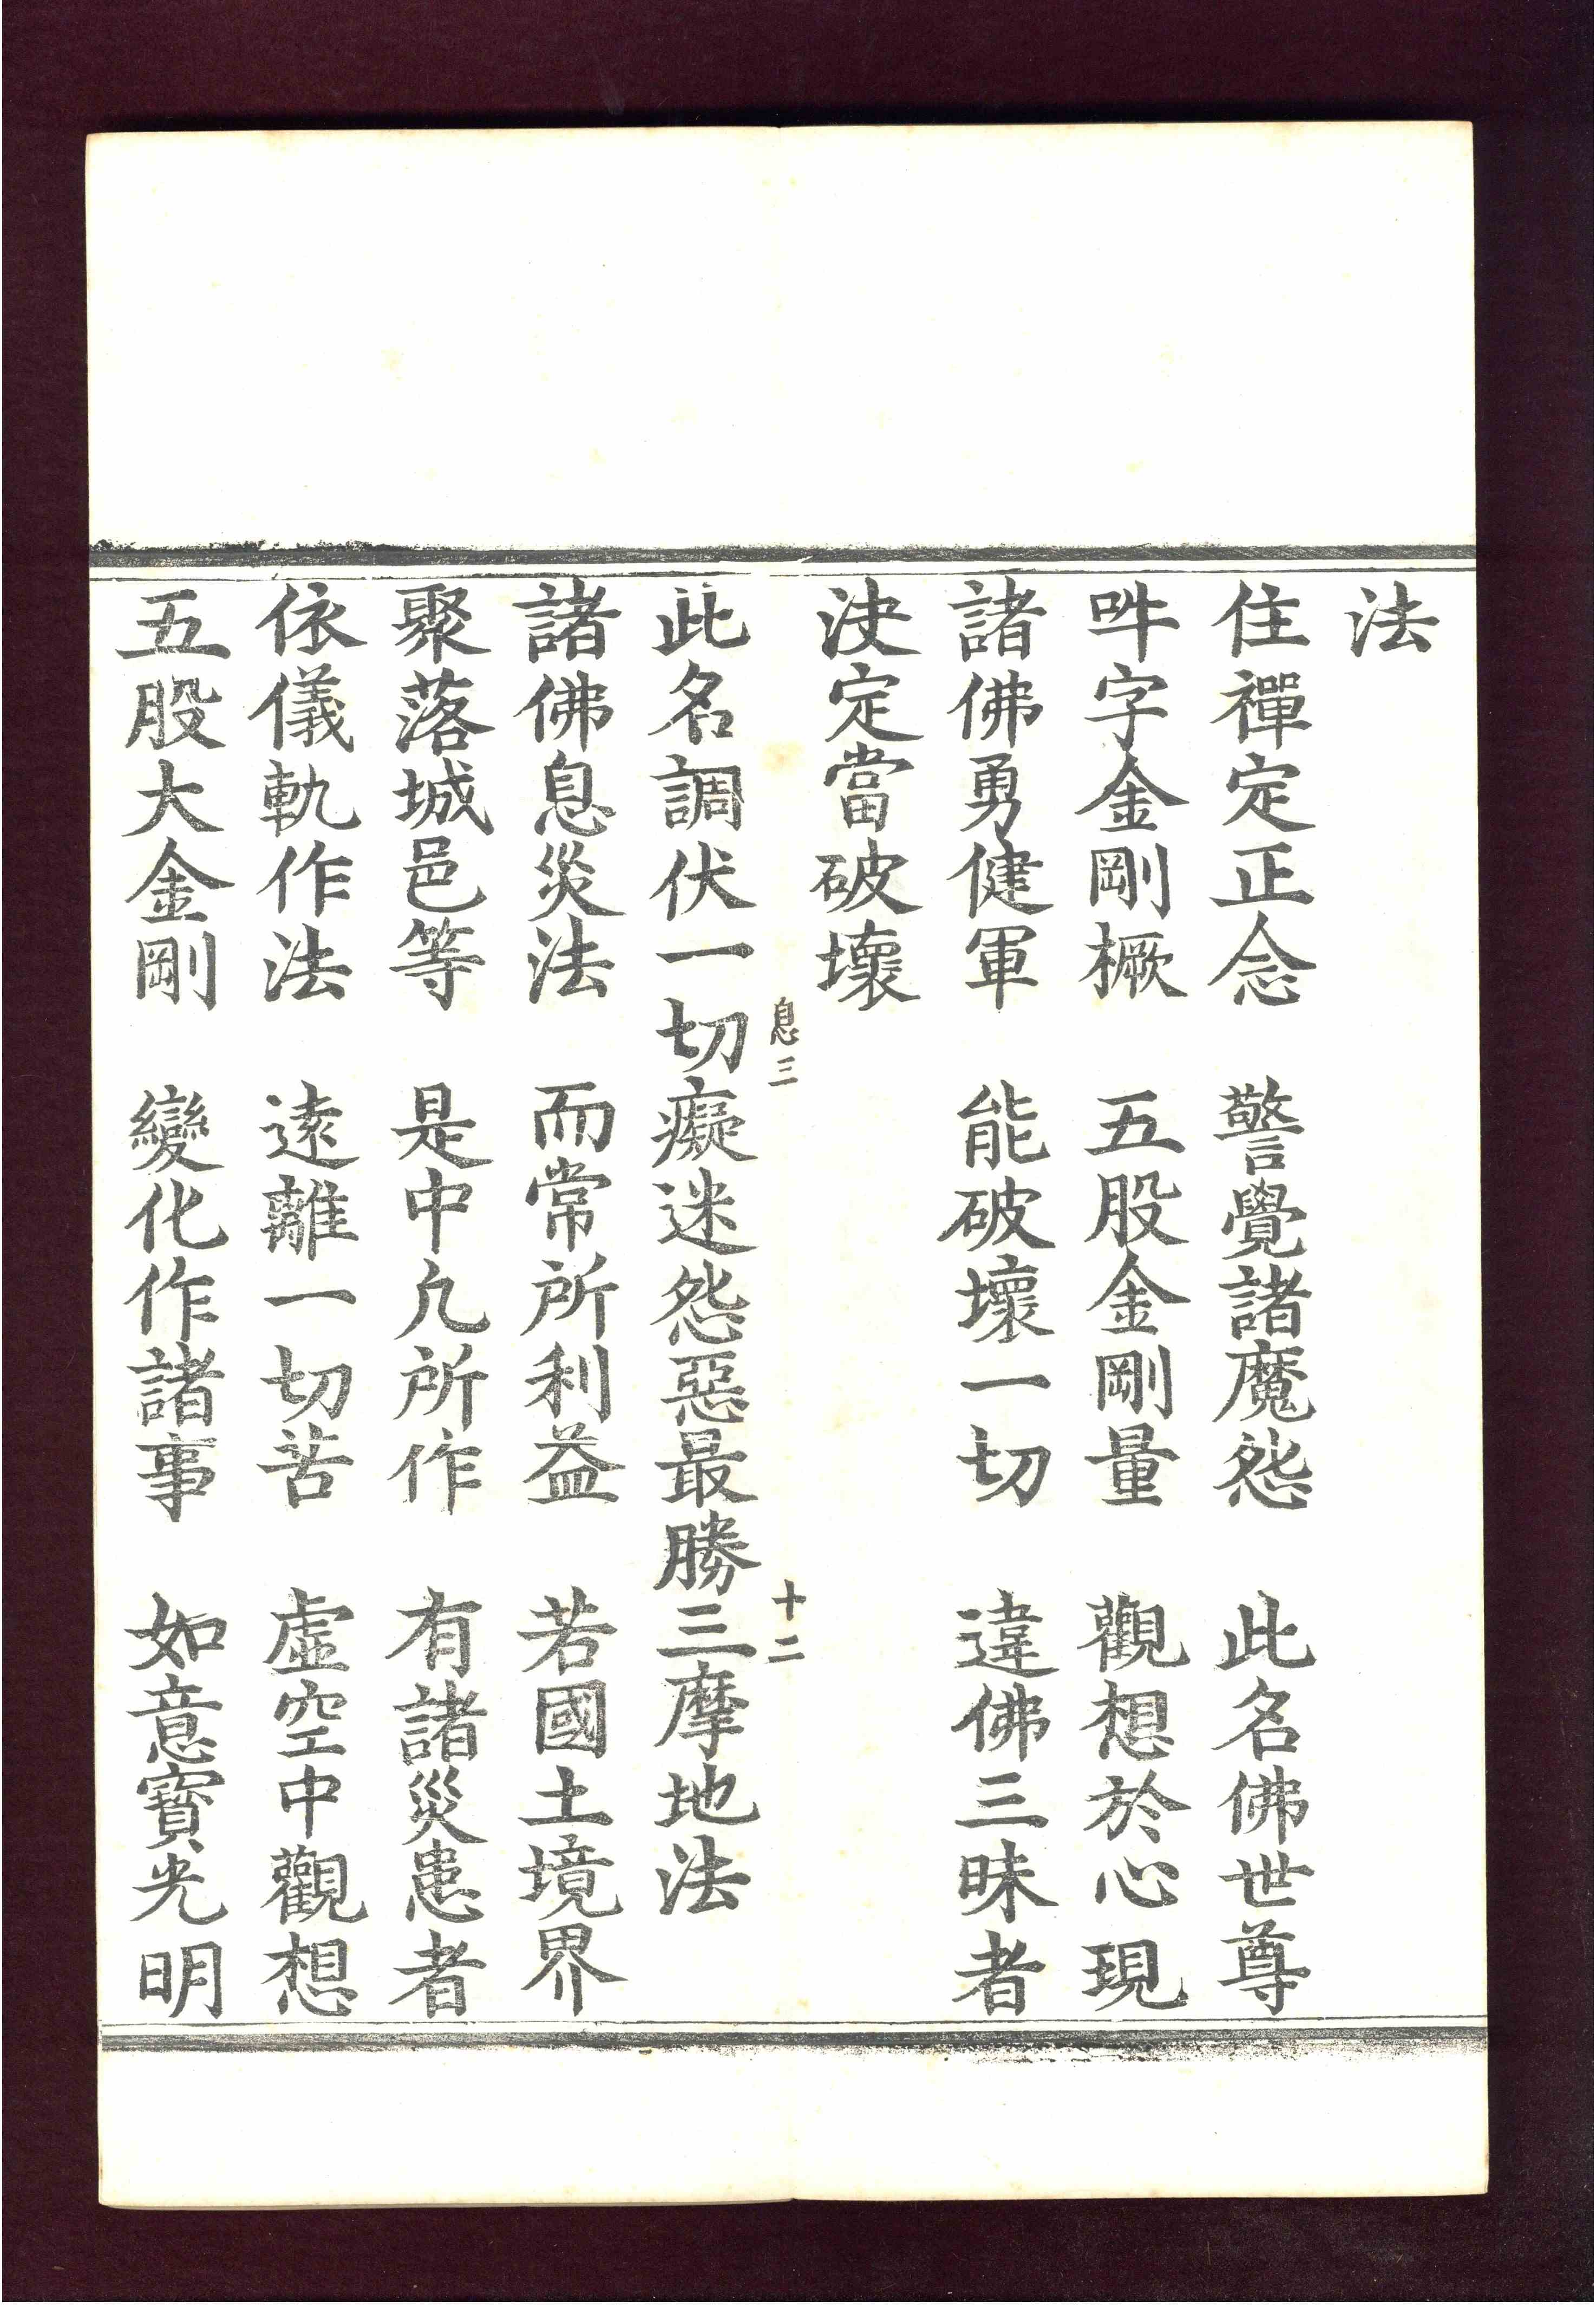 法
住禪定正念　警覺諸魔怨　此名佛世尊
吽字金剛橛　五股金剛量　觀想於心現
諸佛勇健軍　能破壞一切　違佛三昧者
決定當破壞
息三　十二
此名調伏一切癡迷怨惡最勝三摩地法
諸佛息災法　而常所利益　若國土境界
聚落城邑等　是中凢所作　有諸災患者
依儀軌作法　遠離一切苦　虛空中觀想
五股大金剛　變化作諸事　如意寶光明